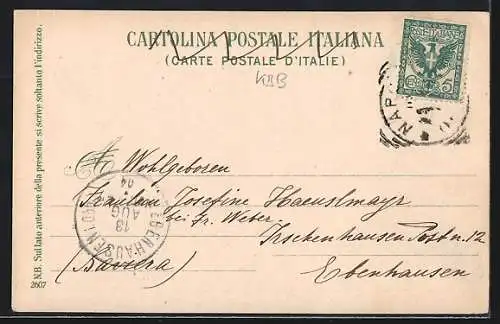 CARTOLINA POSTALE ITALIANA
(CARTE POSTALE D'ITALIE)
KBB
POSTE ITALIANE
5
NAP
Wohlgeboren
Fräulein Josefine Haeuslmayr
bei Fr. Weber.
Irschenhausen Post n. 12
(Baviera)
Ebenhausen
EBENHAUSEN
13
AUG
04
N.B. Sul lato anteriore della presente si scrive soltanto l'indirizzo.
2607